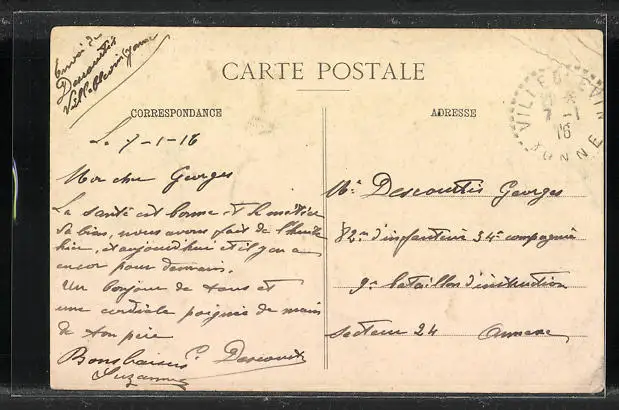 Envoi de
Descourtis
Villeblevin Yonne
CARTE POSTALE
CORRESPONDANCE
ADRESSE
VILLEBLEVIN
7 - 1
16
YONNE
Le 7-1-16
Mon cher Georges
La santé est bonne et le métier
va bien, nous avons fait de l'huile
hier, et aujourd'hui et il y en a
encor pour demain.
Un bonjour de tous et
une cordiale poignée de main
de ton père
Bons baisers Descourtis
Suzanne
Mr Descourtis Georges
82e d'infanterie 34e compagnie
9e bataillon d'instruction
Secteur 24